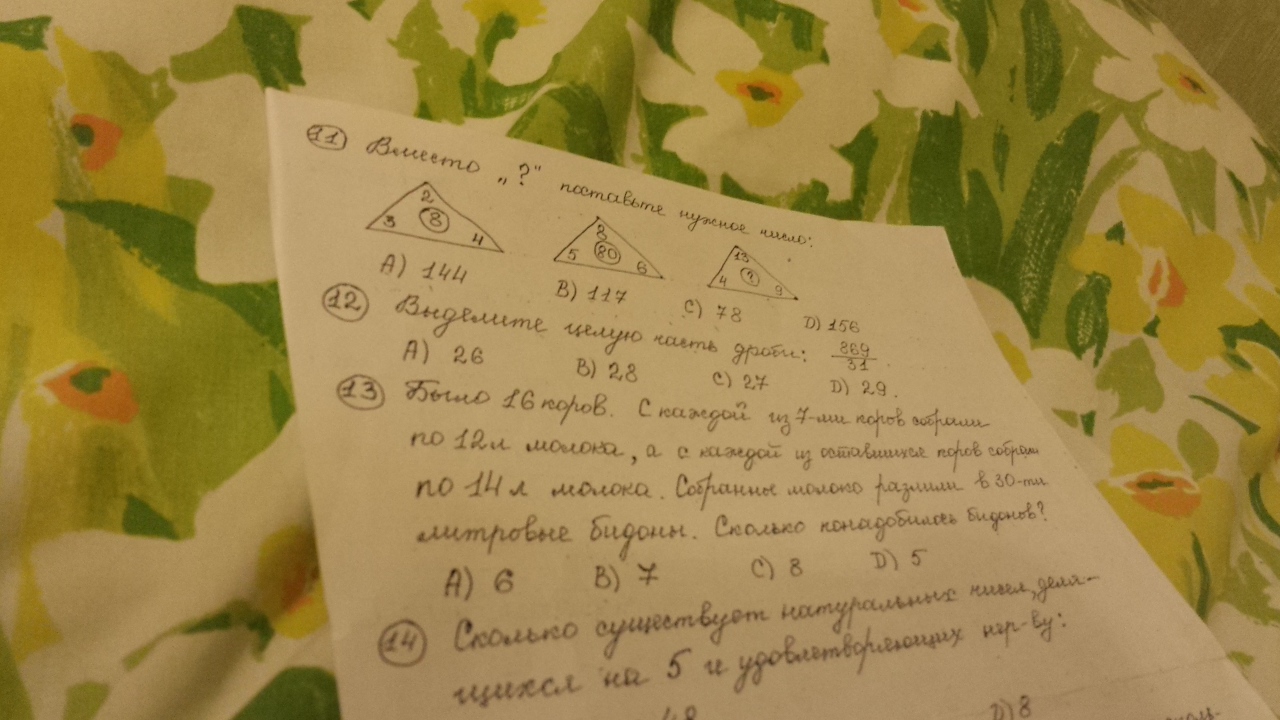 11 Вместо „?“ поставьте нужное число:
2
3 8 4
8
5 80 6
13
4 ? 9
A) 144 B) 117 C) 78 D) 156
12 Выделите целую часть дроби: 869/31
A) 26 B) 28 C) 27 D) 29.
13 Было 16 коров. С каждой из 7-ми коров собрали
по 12 л молока, а с каждой из оставшихся коров собрали
по 14 л молока. Собранное молоко разлили в 30-ти
литровые бидоны. Сколько понадобилось бидонов?
A) 6 B) 7 C) 8 D) 5
14 Сколько существует натуральных чисел, деля-
щихся на 5 и удовлетворяющих нер-ву:
48 D) 8